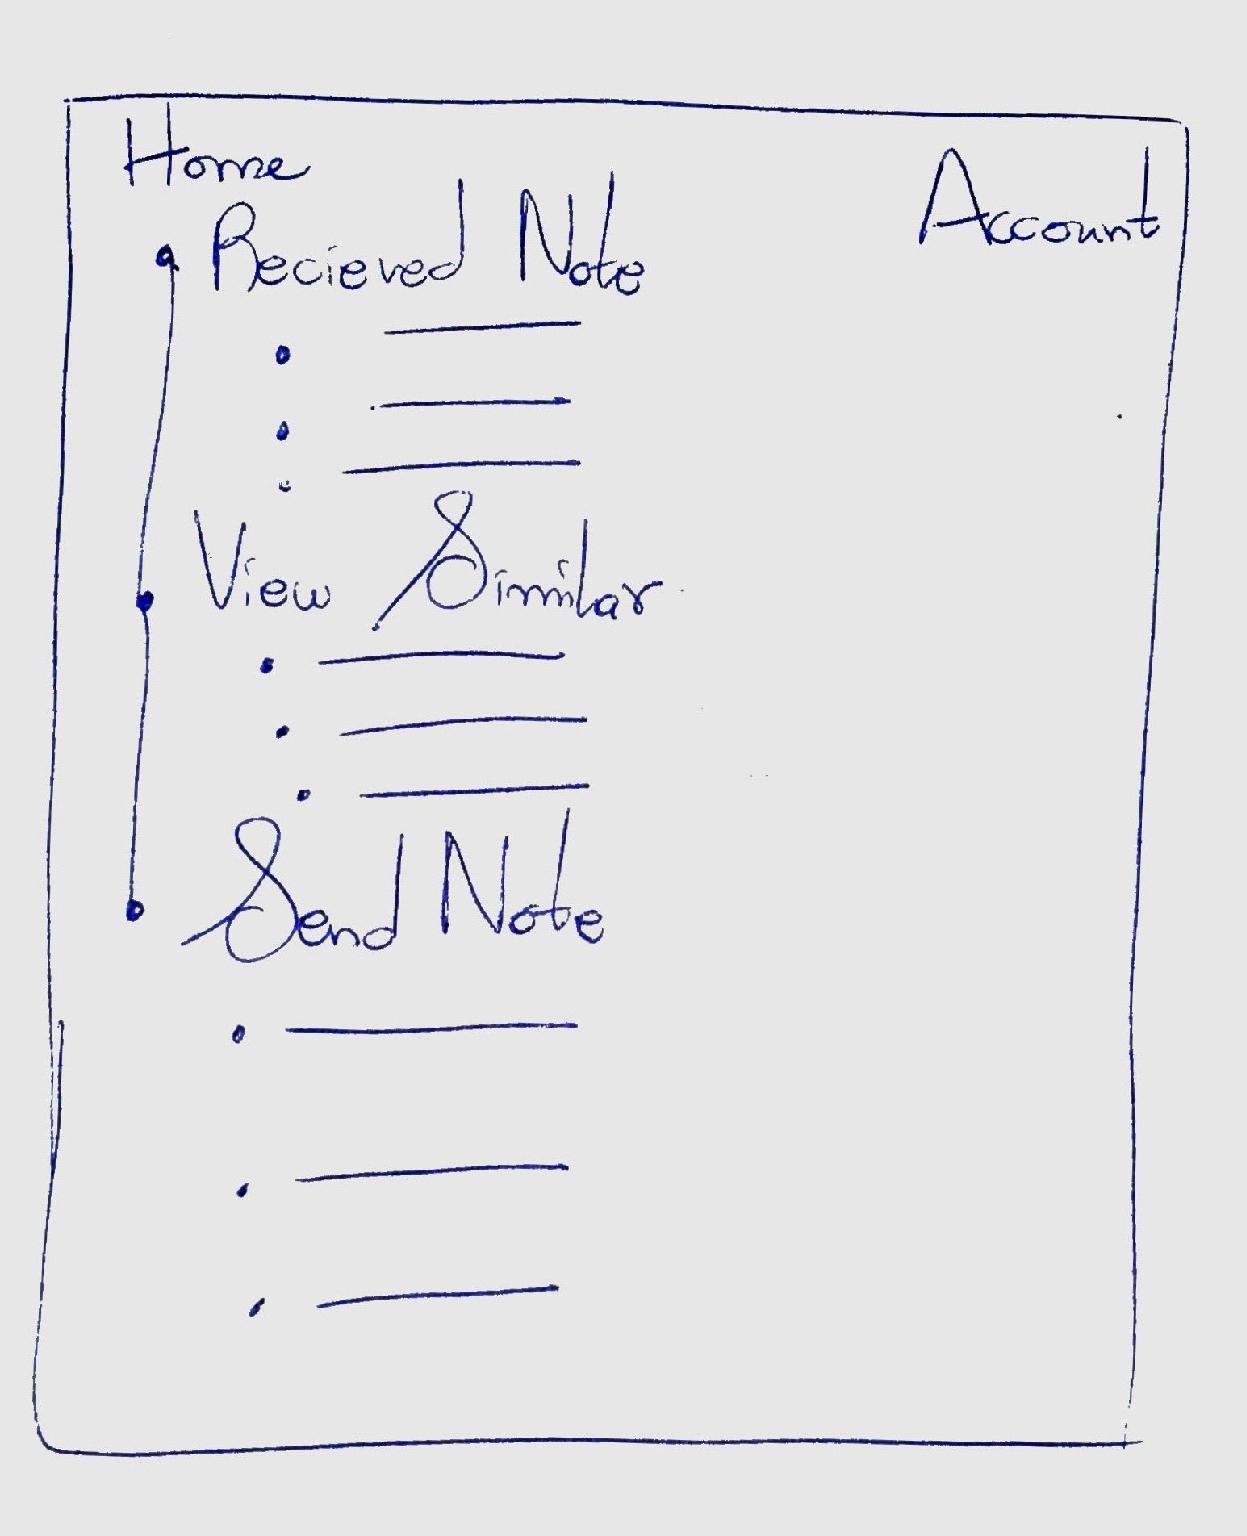 Home
Account
Recieved Note
View Similar
Send Note